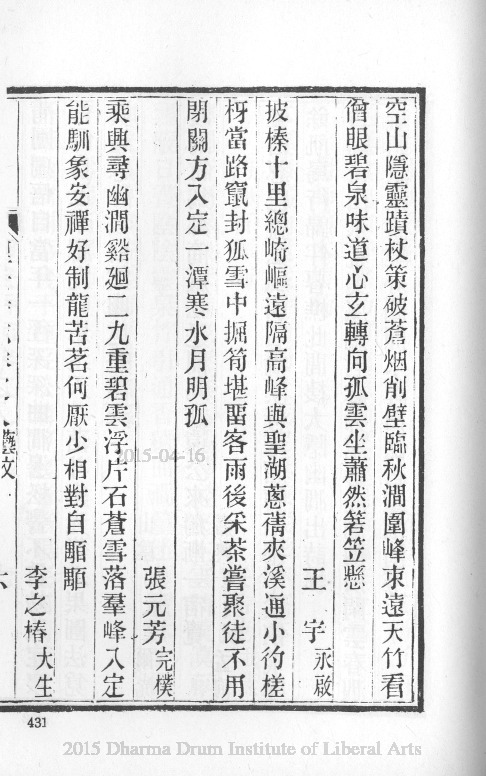 空山隱靈蹟杖策破蒼烟削壁臨秋澗圍峰束遠天竹看
僧眼碧泉味道心玄轉向孤雲坐蕭然箬笠懸
王宇永啟
披榛十里總崎嶇遠隔高峰與聖湖蔥蒨夾溪通小彴槎
枒當路竄封狐雪中掘筍堪畱客雨後采茶嘗聚徒不用
閉關方入定一潭寒水月明孤
張元芳完樸
乘興尋幽澗谿廻二九重碧雲浮片石蒼雪落羣峰入定
能馴象安禪好制龍苦茗何厭少相對自顒顒
李之椿大生
藝文
六
431
2015-04-16
2015 Dharma Drum Institute of Liberal Arts